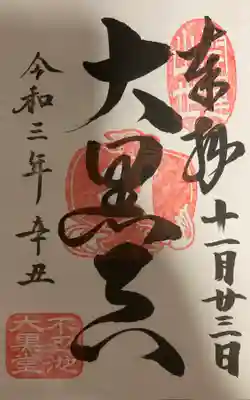 奉拝 十一月廿三日
大黒天
令和三年 辛丑
不忍池
大黒堂